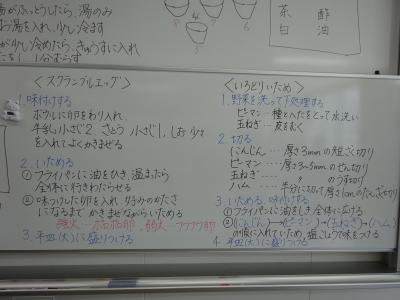 がふっとうしたら、湯のみ
お湯を入れ、少し冷ます
が少し冷めたら、きゅうすに入れ、
1分むらす
茶 酢
白 油
<スクランブルエッグ>
1. 味付けする
ボウルに卵をわり入れ、
牛乳小さじ2、さとう小さじ1、しお少々
を入れてよくかきまぜる
2. いためる
①フライパンに油をひき、温まったら
全体に行きわたらせる
②味つけした卵を入れ、好みのかたさ
になるまでかきまぜながらいためる
強火…ポロポロ卵、弱火…フワフワ卵
3. 平皿(大)に盛りつける
<いろどりいため>
1. 野菜を洗って下処理する
ピーマン…種とへたをとって水洗い
玉ねぎ…皮をむく
2. 切る
にんじん…厚さ3mmの短ざく切り
ピーマン…厚さ3~5mmのせん切り
玉ねぎ… 〃 のうす切り
ハム…半分に切って厚さ1cmのたんざく切り
3. いためる、味付けする
①フライパンに油をしき、全体に広げる
②(にんじん)→(ピーマン)→(玉ねぎ)→(ハム)
の順に入れていため、塩こしょうで味をつける
4. 平皿(大)に盛りつける